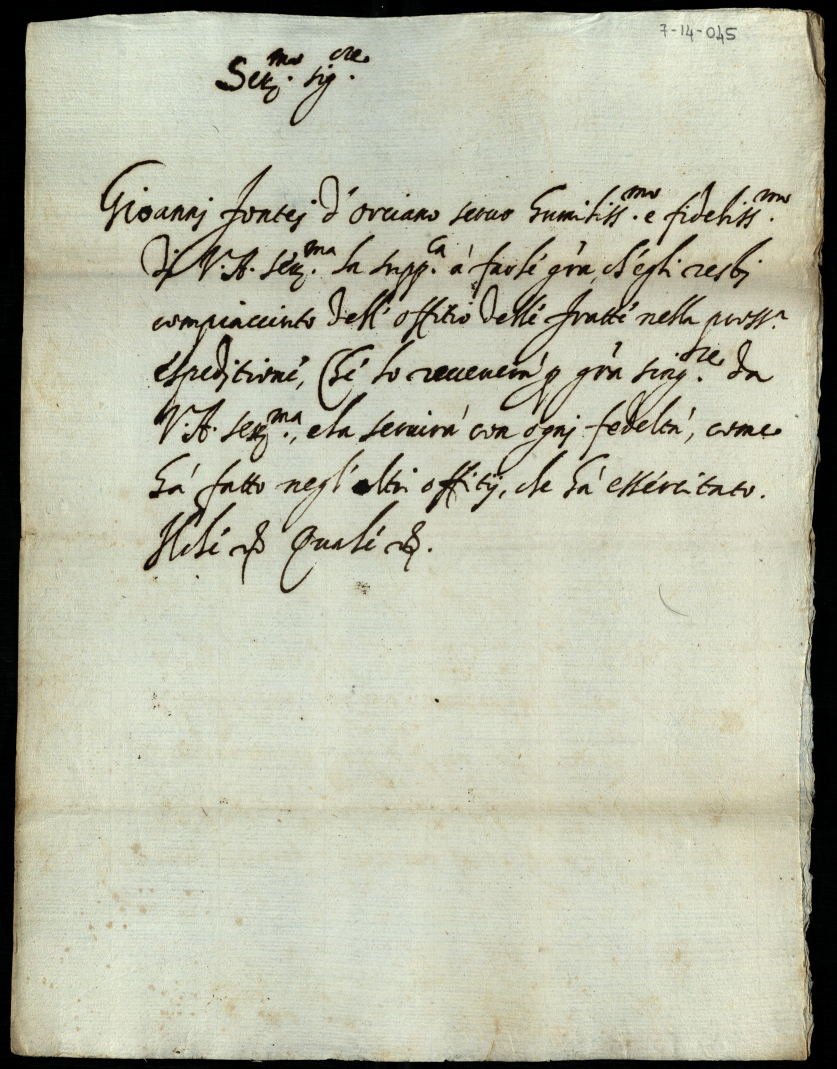 7-14-045
Ser.mo sig.ore
Giovannj Fontej d'Orciano servo humiliss.mo e fideliss.mo
dj V.A. ser.ma la supp.ca à farlé gr̃a, ch'egli restj
compiacciuto dell'offitio dellé Fratté nella pross.a
éspeditioné, Ché lo receverà p gr̃a sing.re da
V.A. ser.ma, e la servirà con ognj fedeltà, come
hà fatto negl'altri offitij, che hà éssércitato.
&. Qualé &.